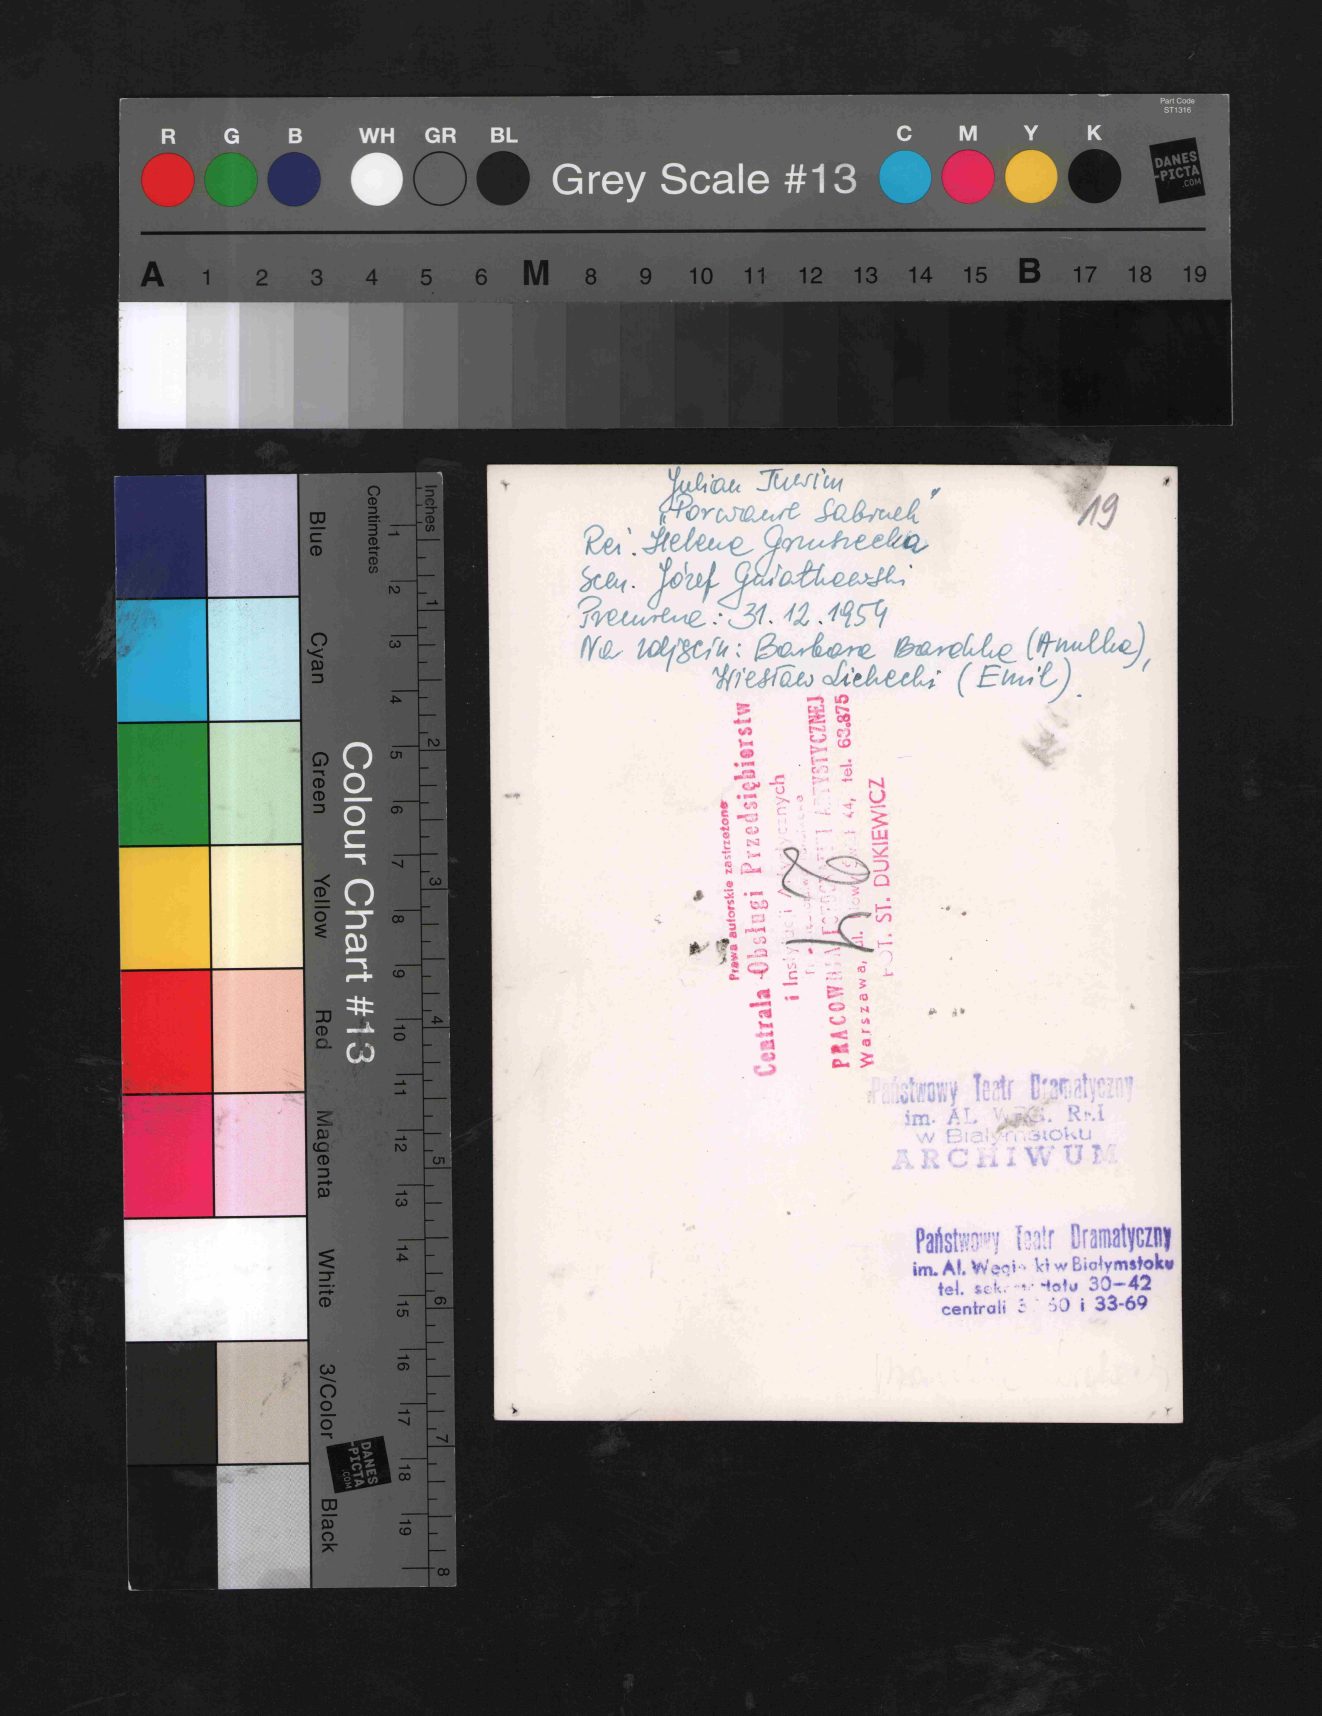 Part Code
ST1316
R G B WH GR BL Grey Scale #13 C M Y K
DANES
-PICTA
.COM
A 1 2 3 4 5 6 M 8 9 10 11 12 13 14 15 B 17 18 19
Julian Tuwim
„Porwanie Sabinek”
19
Reż. Helena Gruszecka
Scen. Józef Gwiatkowski
Premiera: 31.12.1954
Na zdjęciu: Barbara Bardzka (Anulka),
Wiesław Lichecki (Emil).
Prawa autorskie zastrzeżone
Centrala Obsługi Przedsiębiorstw
i Instytucji Artystycznych
PRACOWNIA FOTOGRAFII ARTYSTYCZNEJ
Warszawa, ul. 44, tel. 63.875
FOT. ST. DUKIEWICZ
Państwowy Teatr Dramatyczny
im. AL.
w Białymstoku
ARCHIWUM
Państwowy Teatr Dramatyczny
im. Al. Węgierki w Białymstoku
tel. sekretariatu 30-42
centrali i 33-69
Colour Chart #13
Blue Cyan Green Yellow Red Magenta White 3/Color Black
Centimetres
1 2 3 4 5 6 7 8 9 10 11 12 13 14 15 16 17 18 19
Inches
1 2 3 4 5 6 7 8
DANES
-PICTA
.COM